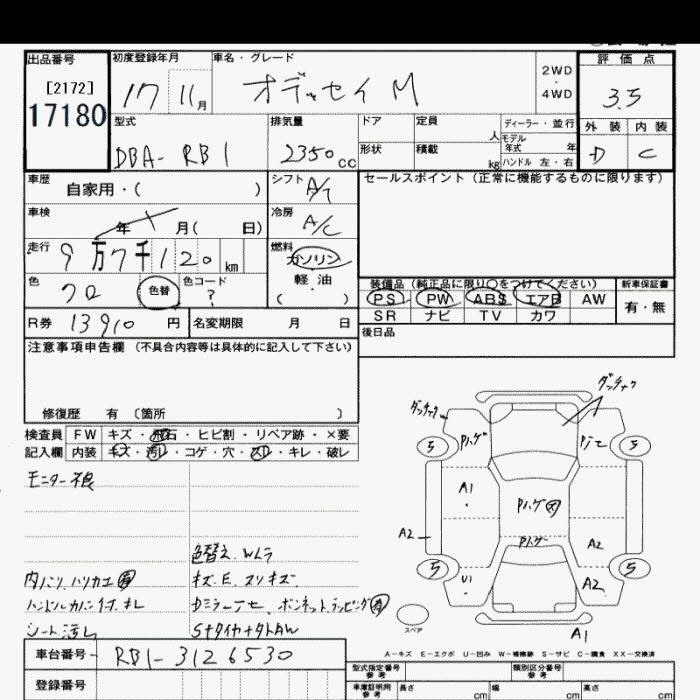 出品番号 初度登録年月 車名・グレード 評価点
[2172] 17 11月 オデッセイ M 2WD・4WD 3.5
17180
型式 排気量 ドア 定員 人 ディーラー・並行 外装 内装
DBA- RB1 2350cc 形状 積載 kg モデル年式 年 ハンドル 左・右 D C
車歴 自家用・( ) シフト A/T セールスポイント(正常に機能するものに限ります)
車検 年 月( 日) 冷房 A/C
走行 9万7千120km 燃料 ガソリン
軽・油
( )
色 クロ 色替 色コード ?
装備品(純正品に限り○をつけてください) 新車保証書
PS PW ABS エアB AW 有・無
SR ナビ TV カワ
R券 13910円 名変期限 月 日 後日品
注意事項申告欄(不具合内容等は具体的に記入して下さい)
修復歴 有 〔箇所 〕
検査員 FW キズ・飛石・ヒビ割・リペア跡・×要
記入欄 内装 キズ・汚レ・コゲ・穴・スレ・キレ・破レ
モニター不良
色替え.Wムラ
内ハリハリカエ
キズ.E.スリキズ
シート汚レ
S+タイヤ+タトAW
Pハゲ
5 5
A1 Pハゲ
A2 Pハゲ A2
5 U1 A2 5
スペア A1
A−キズ E−エクボ U−凹み W−補修跡 S−サビ C−腐食 XX−交換済
車台番号 RB1-3126530
登録番号
型式指定番号 参考 類別区分番号 参考
車庫証明用 参考 長さ cm 幅 cm 高さ cm